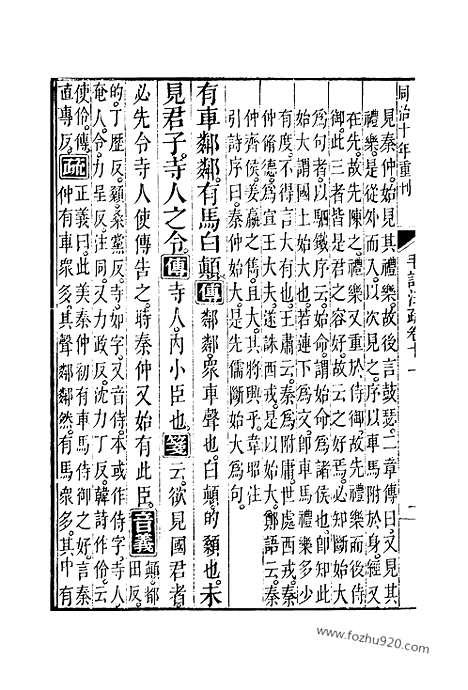 同治十年重刊 毛詩注疏卷十一
見秦仲。始見其禮樂。故後言鼓瑟。二章傳曰。又見其
禮樂。是從外而入。以次見之。序以車馬附於身。經又
在先。故先陳之。禮樂又重於侍御。故先禮樂而後侍
御。此三者皆是君之容好。故云之好焉。必知斷始大
為句者。以駟鐵序云。始命。謂始命為諸侯也。卽知此
始大謂國土始大也。若連下為文。卽車馬禮樂多少
有度。不得言大有也。王肅云。秦為附庸。世處西戎。秦
仲脩德。為宣王大夫。遂誅西戎。是以始大。鄭語云。秦
仲齊侯。姜嬴之雋。且大。其將興乎。韋昭注
引詩序曰。秦仲始大。是先儒斷始大為句。
有車鄰鄰。有馬白顛。傳 鄰鄰。衆車聲也。白顛。的顙也。未
見君子。寺人之令。傳 寺人。內小臣也。箋云。欲見國君者。
必先令寺人使傳告之。時秦仲又始有此臣。音義 顛。都
田反。
的。丁歷反。顙。桑黨反。寺。如字。又音侍。本或作侍字。寺人。
奄人。令。力呈反。注同。又力政反。沈力丁反。韓詩作伶。云
使伶。傳。
直專反。疏 正義曰。此美秦仲初有車馬侍御之好。言秦
仲有車衆多。其聲鄰鄰然。有馬衆多。其中有
www.fozhu920.com